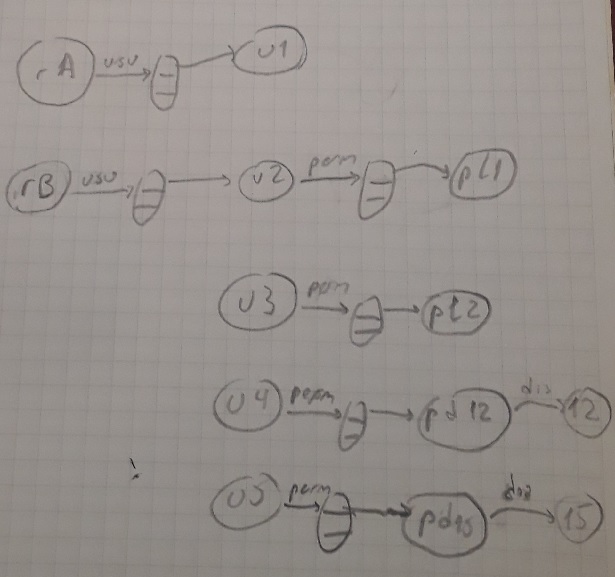 rA usu u1
rB usu u2 perm pl1
u3 perm pl2
u4 perm pd12 dia 12
u5 perm pd15 dia 15